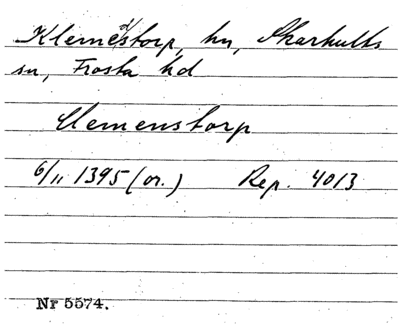 Klemedstorp, hn, Skarhults
sn, Frosta hd
Clemenstorp
6/11 1395 (or.) Rep. 4013
Nr 5574.